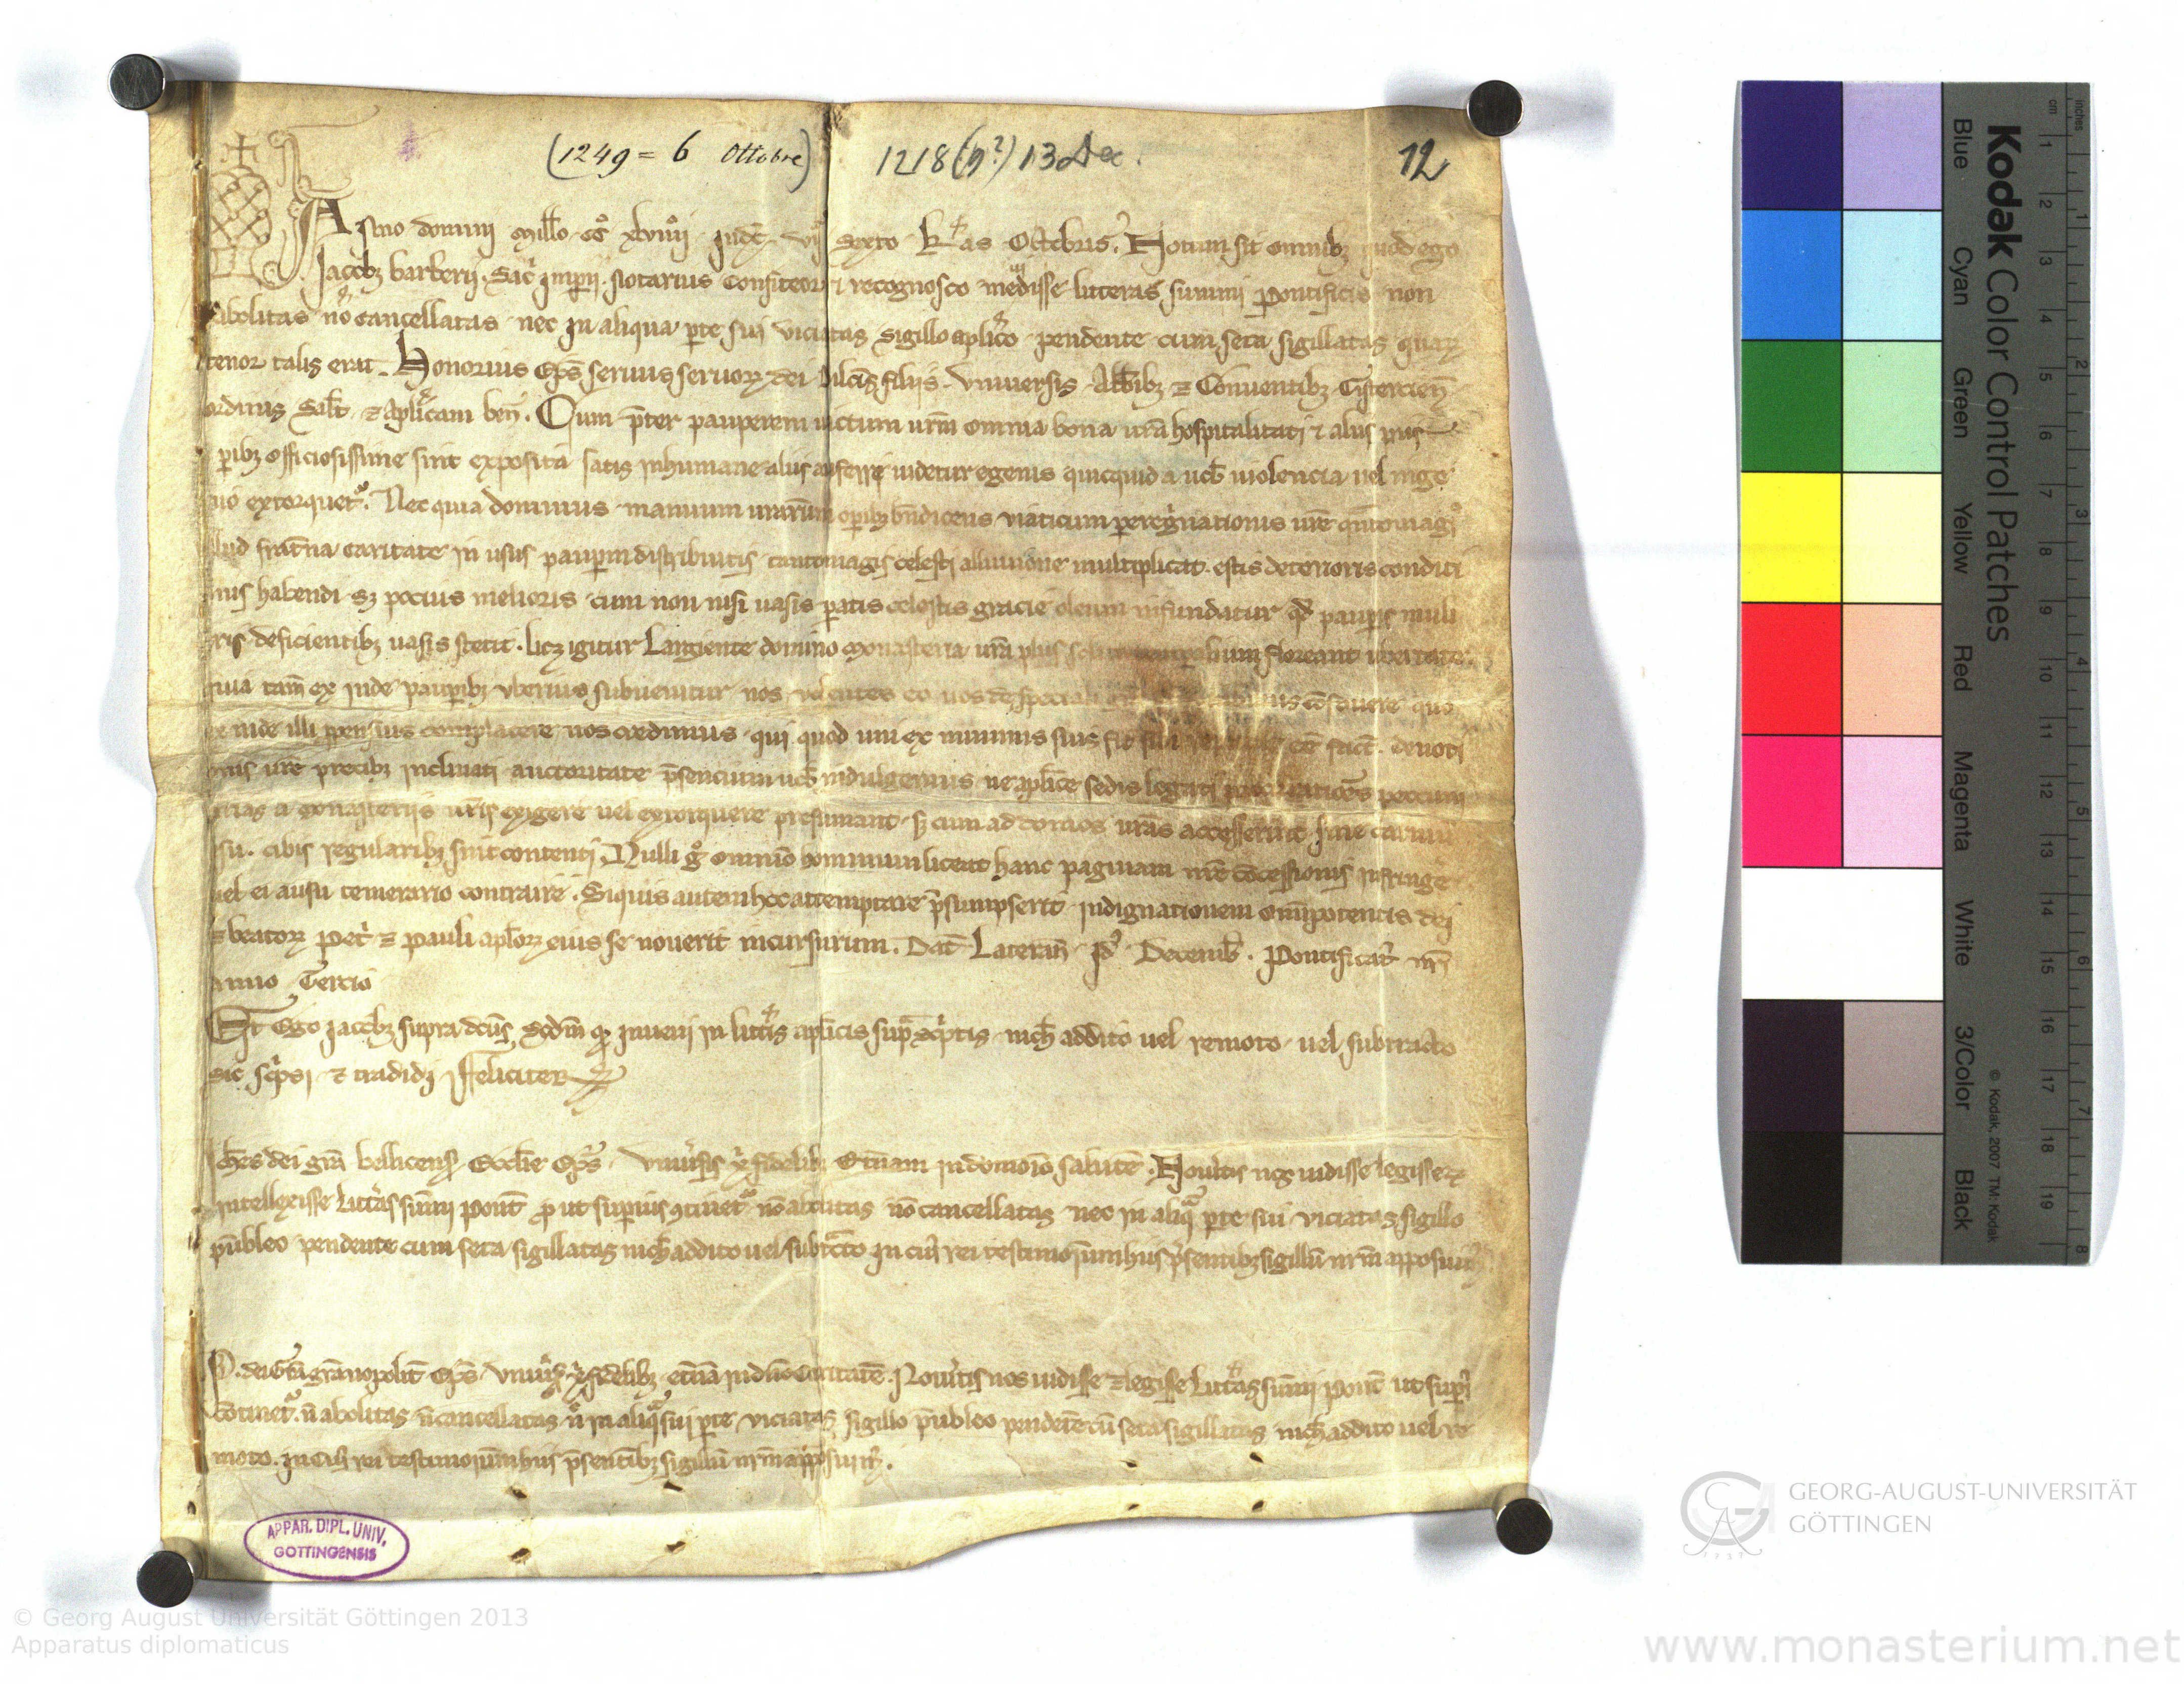 (1249 = 6 Ottobre) 1218 (9?) 13 Dec. 12
Anno domini Millo. cco xlviiij Indic̄ vij sexto kas Octobris. Notum sit omnibȝ quod ego
Jacobȝ barberij. Sac̄ Imperij. Notarius Confiteor ⁊ recognosco me uidisse litteras summi pontificis non
abolitas nō cancellatas nec In aliqua parte sui viciatas sigillo aplico pendente cum seta sigillatas quaꝝ
tenor talis erat. Honorius eps̄ seruus seruoꝝ dei dilc̄is filiis. Vniuersis Abb̄ibȝ ⁊ Conuentibȝ Cistercien̄
ordinis Sal̄t ⁊ aplicam ben̄. Cum p̄ter pauperem victum ur̄m omnia bona ur̄a hospitalitati ⁊ aliis piis
operibȝ officiosissime sint exposita satis inhumane aliis auferre uidetur egenis quicquid a uob̄ uiolencia uel inge
nio extorquet᷑. Nec quia dominus manuum ur̄arum operibȝ bn̄dicens viaticum peregrinationis ur̄e quanto magis
illud frat̄na caritate in usus pauperum distribuitis tanto magis celesti alluuione multiplicat. estis deterioris conditi
onis habendi sȝ pocius melioris cum non nisi uasis paratis celestis gracie oleum infundatur qd̄ pauperis muli
eris deficientibȝ uasis stetit. licȝ igitur Largiente domino monasteria ur̄a plus solito floreant ubertate
quia tam̄ ex inde pauperibȝ vberius subuenitur nos uolentes eo uos de speciali quo
ex inde illi propensius complacere nos credimus qui quod uni ex minimis suis fit sibi fact̄. deuoti
onis ur̄e precibȝ inclinati auctoritate p̄sencium uob̄ indulgemus ne aplice sedis legati pecuni
arias a monasteriis ur̄is exigere uel extorquere presumant sȝ cum ad domos ur̄as accesserint sine carnium
esu. cibis regularibȝ sint contenti. Nulli g̊ omnīo hominum liceat hanc paginam nr̄e cōcessionis infringe
uel ei ausu temerario contraire. Siquis autem hoc attemptare p̄sumpserit indignationem omīpotentis dei
⁊ beatoꝝ Pet̄ ⁊ Pauli aploꝝ eius se nouerit incursurum. Dat̄ Lateran̄ Id̄ Decemb̄. Pontificat̄ nr̄i
anno Tercio
Et Ego Jacobȝ supra dc̄us, Scd̄m qȝ Inueni in litt̄is aplicis supra sc̄ptis nich̄ addito uel remoto uel subtracto
sic sc̄psi ⁊ tradidi Feliciter
Joh̄es dei gr̄a bellicensȝ Eccl̄ie eps̄. Vniu̓sis x̄i fidelibȝ Et̄nam in domino salutē. Nou̓itis nos uidisse legisse ⁊
intellexisse litt̄as sum̄i pont̄ ꝓ ut superius ꝯtinet᷑ nō abolitas nō cancellatas nec in aliqᵃ parte sui viciatas sigillo
plūbeo pendente cum seta sigillatas nich̄ addito uel subtc̄to In cui᷒ rei testimoniūm huis p̄sentibȝ sigillū nr̄m apposuim᷒
P. dei Gr̄a gr̄anopolit̄ eps̄ Vniu̓sis x̄i fidelibȝ et̄nā in dn̄o caritatē. Nou̓itis nos uidisse ⁊ legisse litt̄as sum̄i pont̄ ut superi᷒
cōtinet᷑. n̄ abolitas n̄ cancellatas n̄ in aliqᵃ sui parte viciatas sigillo plūbeo pendente cū seta sigillatas nich̄ addito uel re
moto. In cui᷒ rei testimoniūm huis p̄sentibȝ sigillū nr̄m apposuim᷒.
APPAR. DIPL. UNIV.
GOTTINGENSIS
Kodak Color Control Patches
Blue Cyan Green Yellow Red Magenta White 3/Color Black
© Kodak, 2007 TM: Kodak
cm 1 2 3 4 5 6 7 8 9 10 11 12 13 14 15 16 17 18 19
inches 1 2 3 4 5 6 7 8
GEORG-AUGUST-UNIVERSITÄT
GÖTTINGEN
© Georg August Universität Göttingen 2013
Apparatus diplomaticus
www.monasterium.net